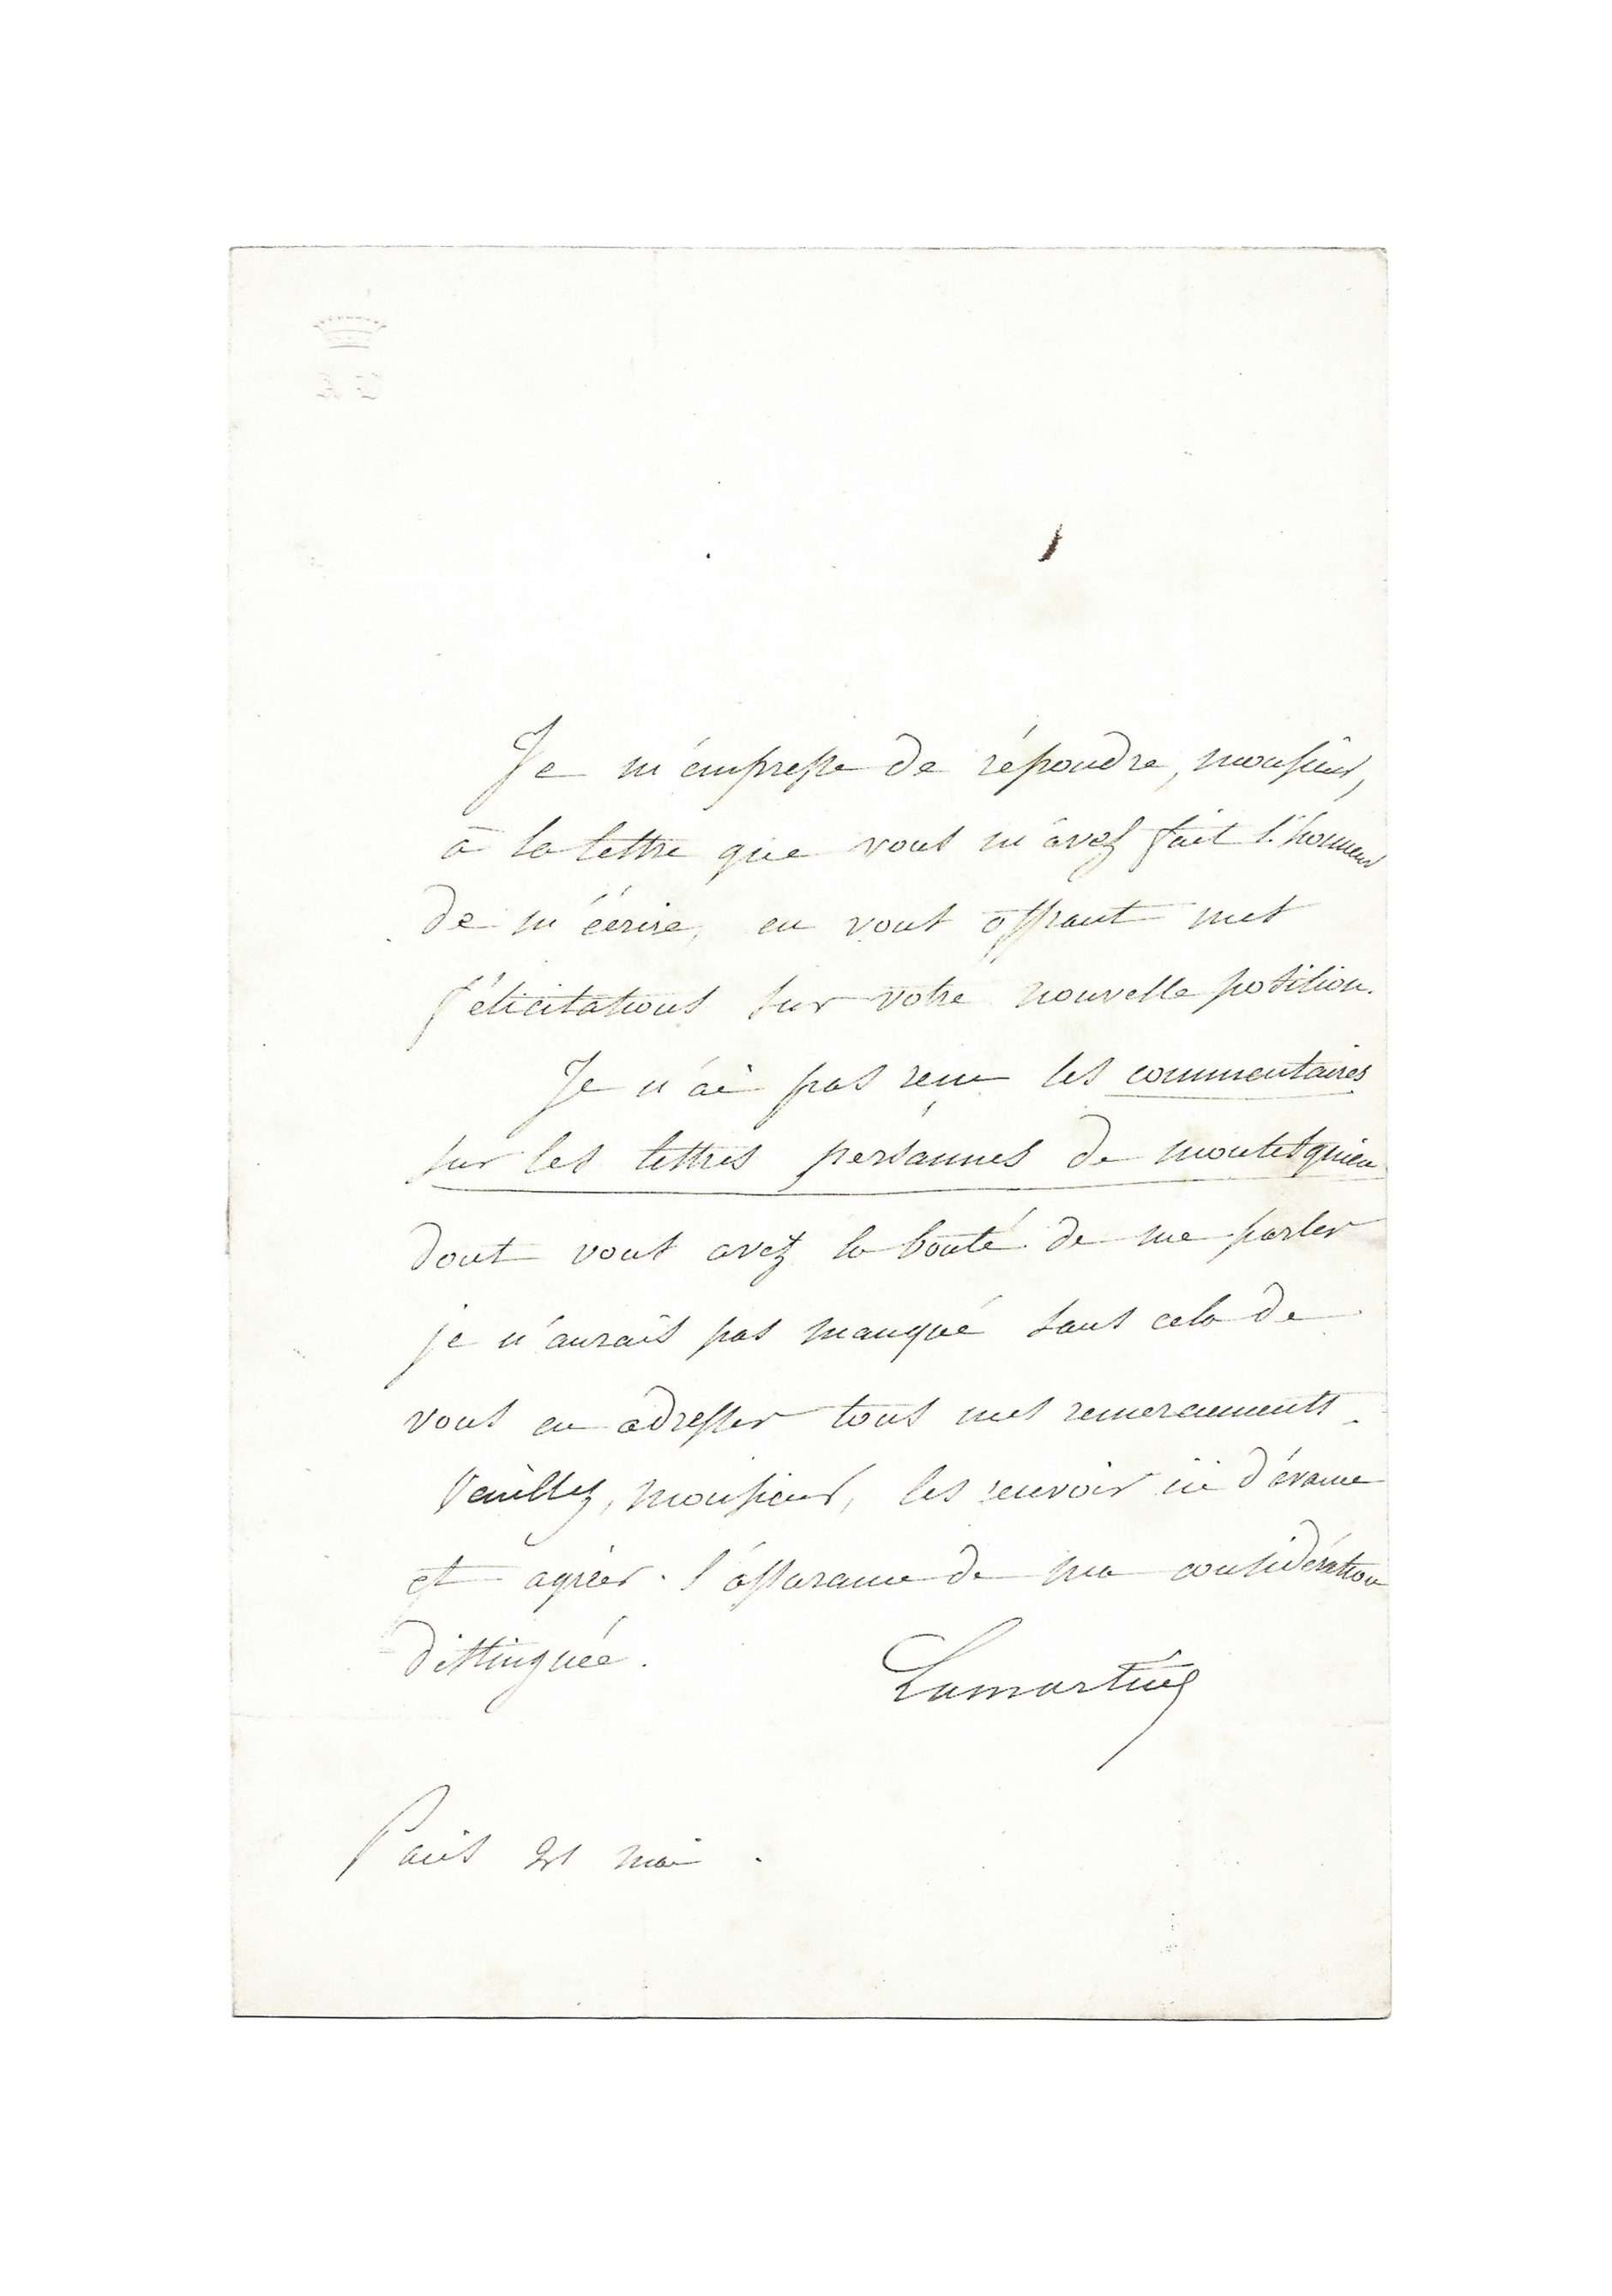 Je m'empresse de répondre, monsieur,
à la lettre que vous m'avez fait l'honneur
de m'écrire, en vous offrant mes
félicitations sur votre nouvelle position.
Je n'ai pas reçu les commentaires
sur les lettres persannes de montesquieu
dont vous avez la bonté de me parler
je n'aurais pas manqué sans cela de
vous en adresser tous mes remerciements.
Veuillez, monsieur, les recevoir ici d'avance
et agréer l'assurance de ma considération
distinguée.
Lamartine
Paris 21 mai.